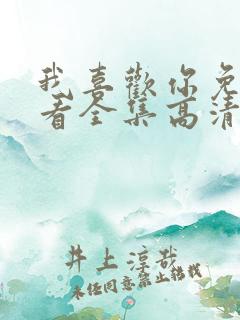 我喜歡你免
看全集高清
井上淳哉
未经同意禁止转载